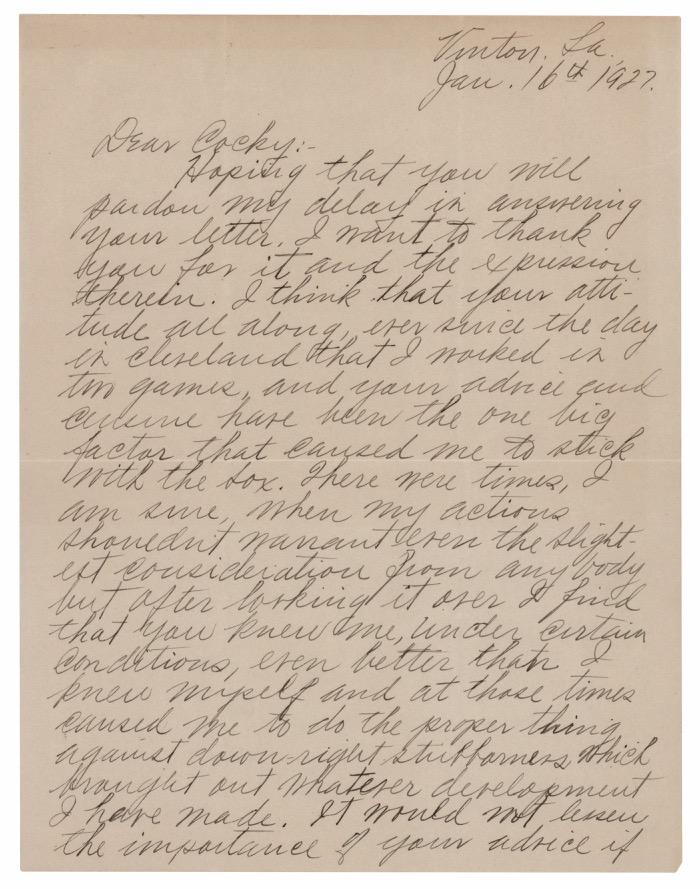 Vinton, La.
Jan. 16th 1927.
Dear Cocky:-
Hoping that you will
pardon my delay in answering
your letter. I want to thank
you for it and the expression
therein. I think that your atti-
tude all along, ever since the day
in cleveland that I worked in
two games, and your advice and
have been the one big
factor that caused me to stick
with the box. There were times, I
am sure, when my actions
shouldn't warrant even the slight-
est consideration from any body
but after looking it over I find
that you knew me, under certain
conditions, even better than I
knew myself and at those times
caused me to do the proper thing
against down-right stubborness, which
brought out whatever development
I have made. It would not lessen
the importance of your advice if